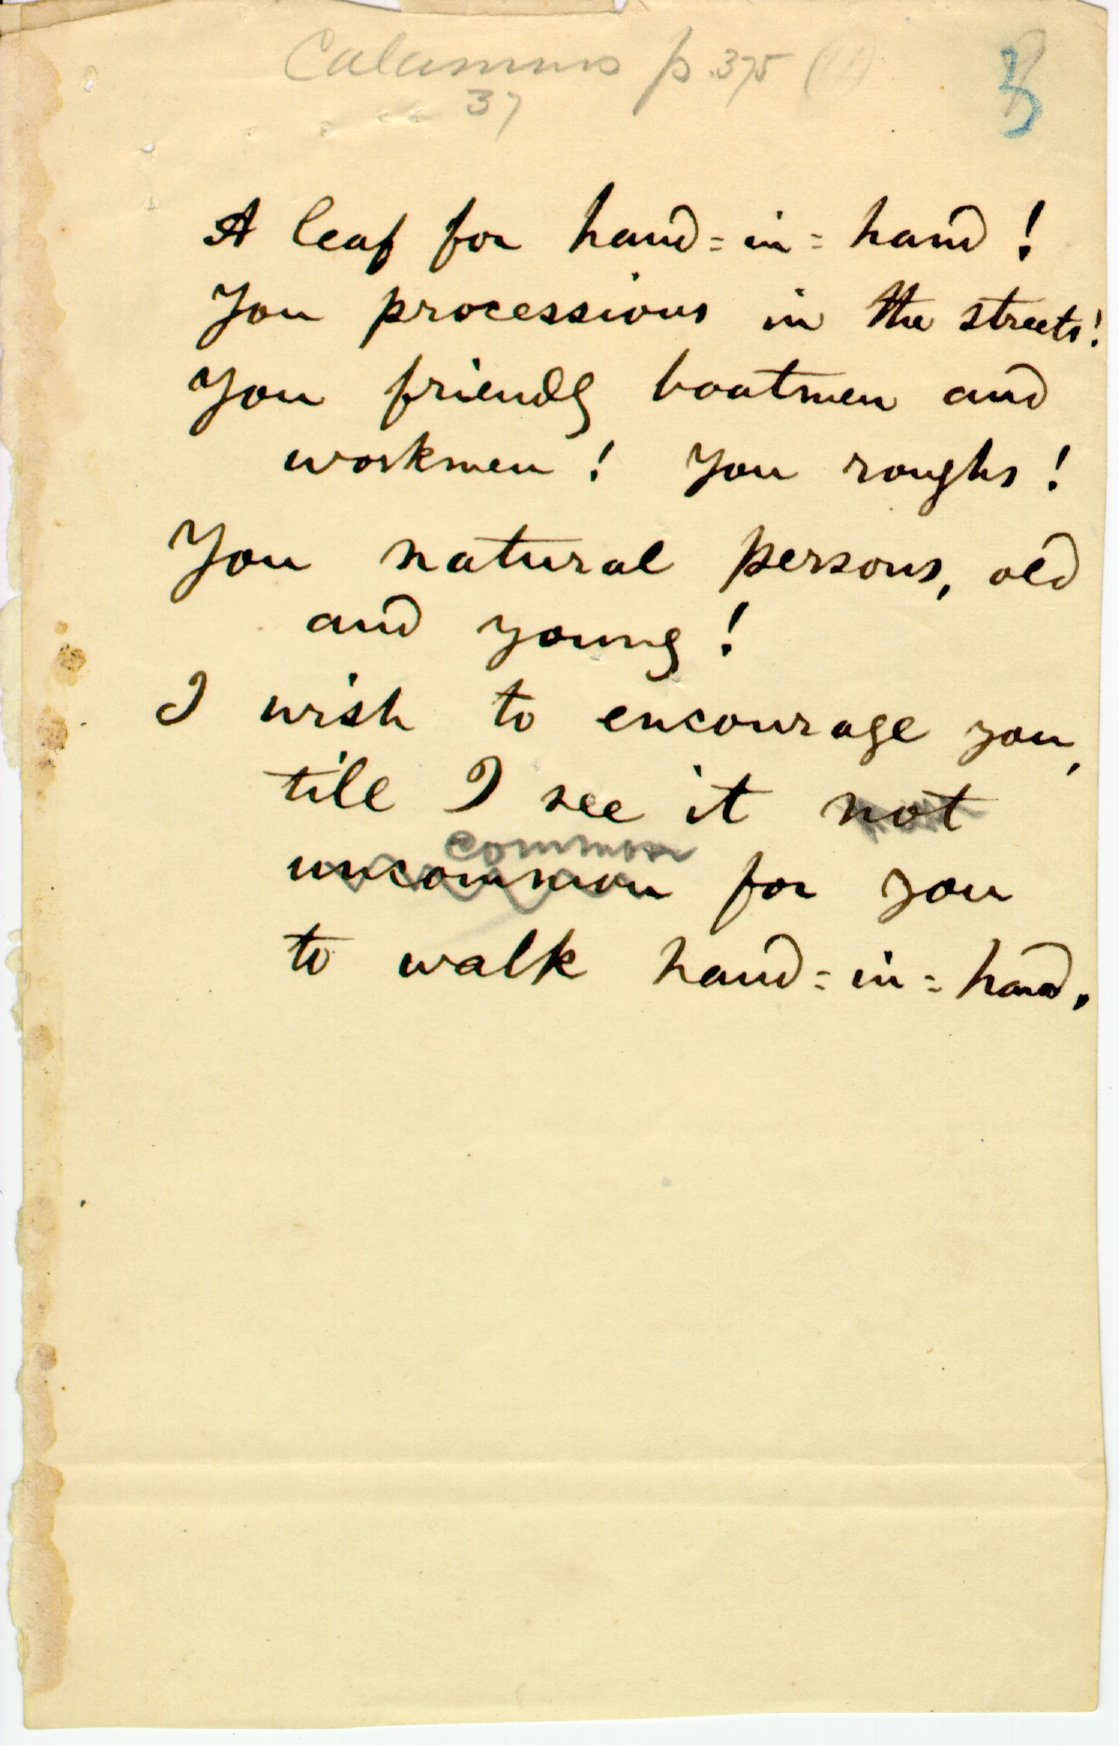 Calamus p. 375
37
5
A leaf for hand=in=hand!
You processions in the streets!
You friendly boatmen and
workmen! You roughs!
You natural persons, old
and young!
I wish to encourage you,
till I see it not
common
uncommon for you
to walk hand=in=hand.